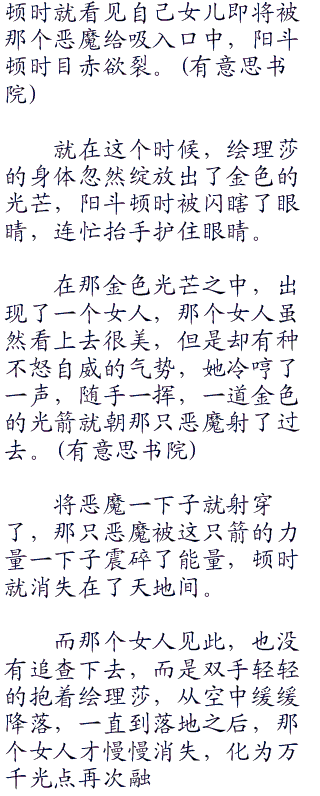 顿时就看见自己女儿即将被
那个恶魔给吸入口中，阳斗
顿时目赤欲裂。(有意思书
院)
就在这个时候，绘理莎
的身体忽然绽放出了金色的
光芒，阳斗顿时被闪瞎了眼
睛，连忙抬手护住眼睛。
在那金色光芒之中，出
现了一个女人，那个女人虽
然看上去很美，但是却有种
不怒自威的气势，她冷哼了
一声，随手一挥，一道金色
的光箭就朝那只恶魔射了过
去。(有意思书院)
将恶魔一下子就射穿
了，那只恶魔被这只箭的力
量一下子震碎了能量，顿时
就消失在了天地间。
而那个女人见此，也没
有追查下去，而是双手轻轻
的抱着绘理莎，从空中缓缓
降落，一直到落地之后，那
个女人才慢慢消失，化为万
千光点再次融